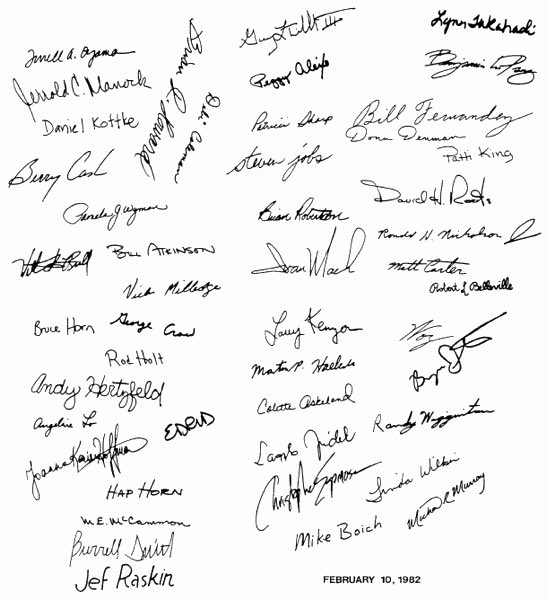 Terrell A. Oyama
Jerrold C. Manock
Daniel Kottke
Brian R. Howard
Berry Cash
Pamela G Wyman
Bill Atkinson
Vicki Milledge
Bruce Horn
George Crow
Rod Holt
Andy Hertzfeld
Angeline Lo
EDRD
Joanna Karin Hoffman
Hap Horn
M.E. McCammon
Burrell Smith
Jef Raskin
Peggy Alexio
Patricia Sharp
steven jobs
Brian Robertson
Ivan Mach
Larry Kenyon
Martin P. Haeberli
Colette Askeland
Christopher Espinosa
Mike Boich
Lynn Takahashi
Bill Fernandez
Donn Denman
Patti King
David H. Roots
Ronald H. Nicholson Jr
Matt Carter
Robert L Belleville
Woz
Randy Wigginton
Linda Wilkin
Michael R Murray
FEBRUARY 10, 1982